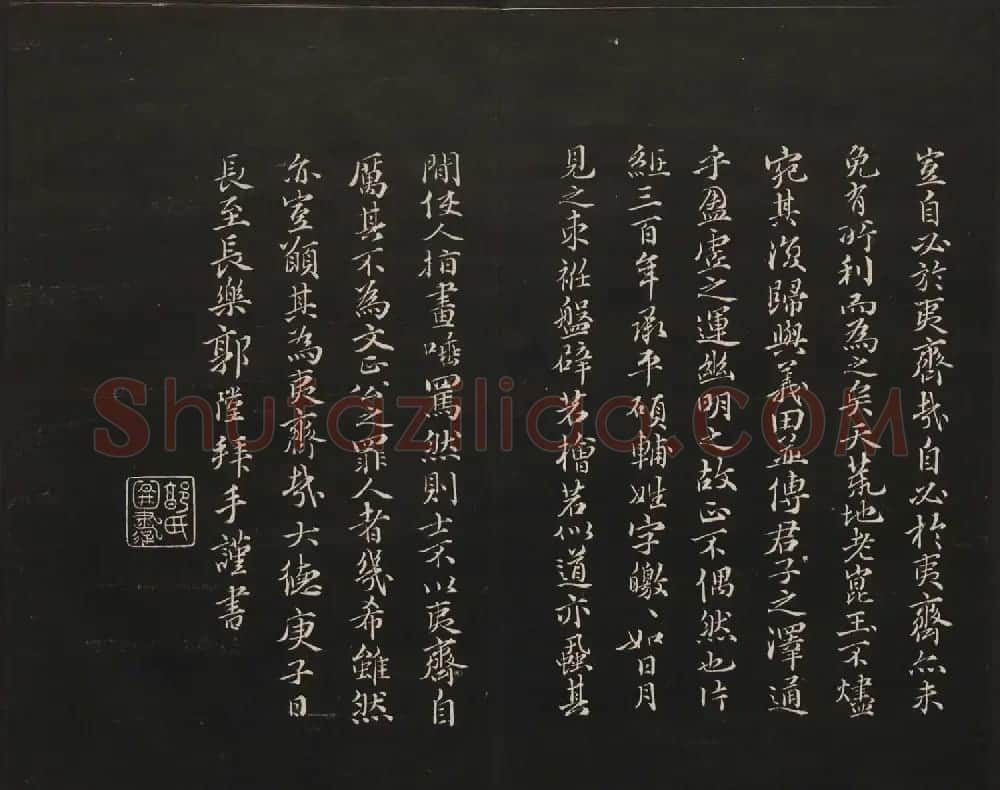 豈自必於夷齊哉自必於夷齊亦未
免有所利而為之矣天荒地老崑玉不燼
宛其復歸與義田並傳君子之澤通
乎盈虛之運幽明之故正不偶然也片
紙三百年承平碩輔姓字皦、如日月
見之束衽盤辟若檜若似道亦蝨其
間使人指畫唾罵然則士不以夷齊自
厲其不為文正公之罪人者幾希雖然
亦豈願其為夷齊哉大德庚子日
長至長樂郭陞拜手謹書
郭氏
Shufaziliao.COM